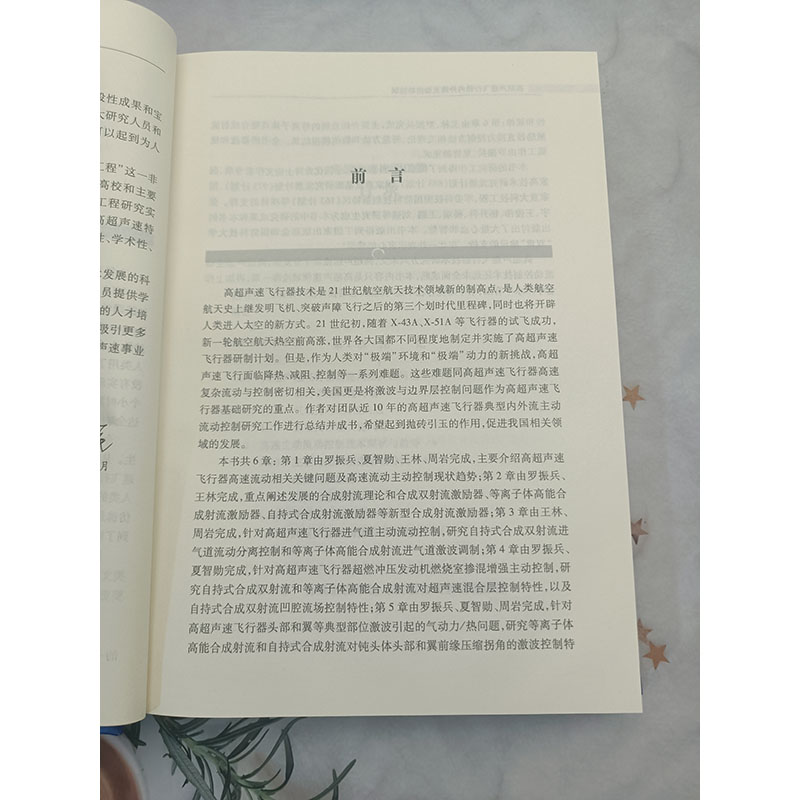 段性成果和宝
大研究人员和
可以起到为人
工程”这一非
高校和主要
工程研究实
高超声速特
性、学术性、
发展的科
员提供学
的人才培
吸引更多
声速事业
月
前 言
高超声速飞行器技术是21世纪航空航天技术领域新的制高点，是人类航空
航天史上继发明飞机、突破声障飞行之后的第三个划时代里程碑，同时也将开辟
人类进入太空的新方式。21世纪初，随着X-43A、X-51A等飞行器的试飞成功，
新一轮航空航天热空前高涨，世界各大国都不同程度地制定并实施了高超声速
飞行器研制计划。但是，作为人类对“极端”环境和“极端”动力的新挑战，高超
声速飞行面临降热、减阻、控制等一系列难题。这些难题同高超声速飞行器高速
复杂流动与控制密切相关，美国更是将激波与边界层控制问题作为高超声速飞
行器基础研究的重点。作者对团队近10年的高超声速飞行器典型内外流主动
流动控制研究工作进行总结并成书，希望起到抛砖引玉的作用，促进我国相关领
域的发展。
本书共6章：第1章由罗振兵、夏智勋、王林、周岩完成，主要介绍高超声速
飞行器高速流动相关关键问题及高速流动主动控制现状趋势；第2章由罗振兵、
王林完成，重点阐述发展的合成射流理论和合成双射流激励器、等离子体高能合
成射流激励器、自持式合成射流激励器等新型合成射流激励器；第3章由王林、
周岩完成，针对高超声速飞行器进气道主动流动控制，研究自持式合成双射流进
气道流动分离控制和等离子体高能合成射流进气道激波调制；第4章由罗振兵、
夏智勋完成，针对高超声速飞行器超燃冲压发动机燃烧室掺混增强主动控制，研
究自持式合成双射流和等离子体高能合成射流对超声速混合层控制特性，以及
自持式合成双射流凹腔流场控制特性；第5章由罗振兵、夏智勋、周岩完成，针对
高超声速飞行器头部和翼等典型部位激波引起的气动力/热问题，研究等离子体
高能合成射流和自持式合成射流对钝头体头部和翼前缘压缩拐角的激波控制特